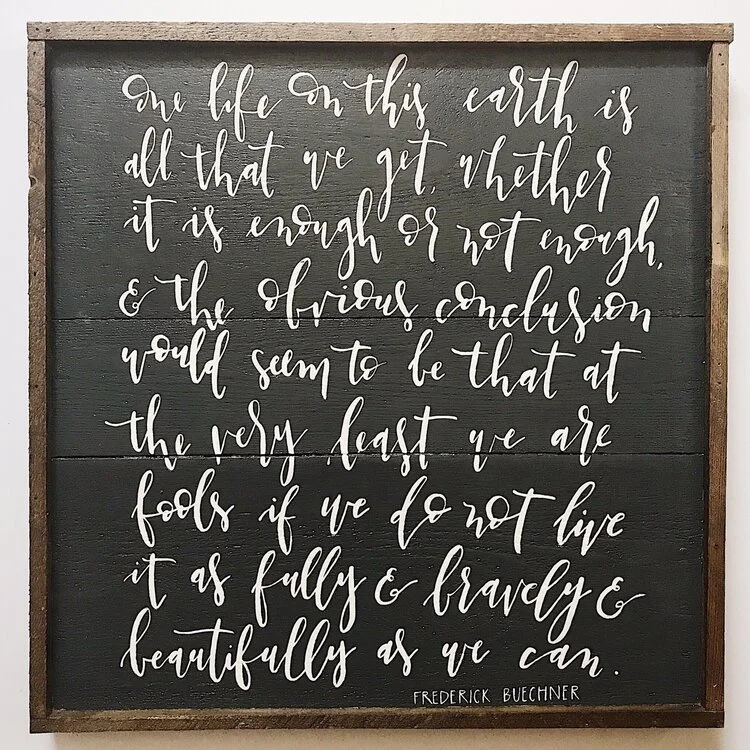 One life on this earth is
all that we get, whether
it is enough or not enough,
& the obvious conclusion
would seem to be that at
the very least we are
fools if we do not live
it as fully & bravely &
beautifully as we can.
FREDERICK BUECHNER